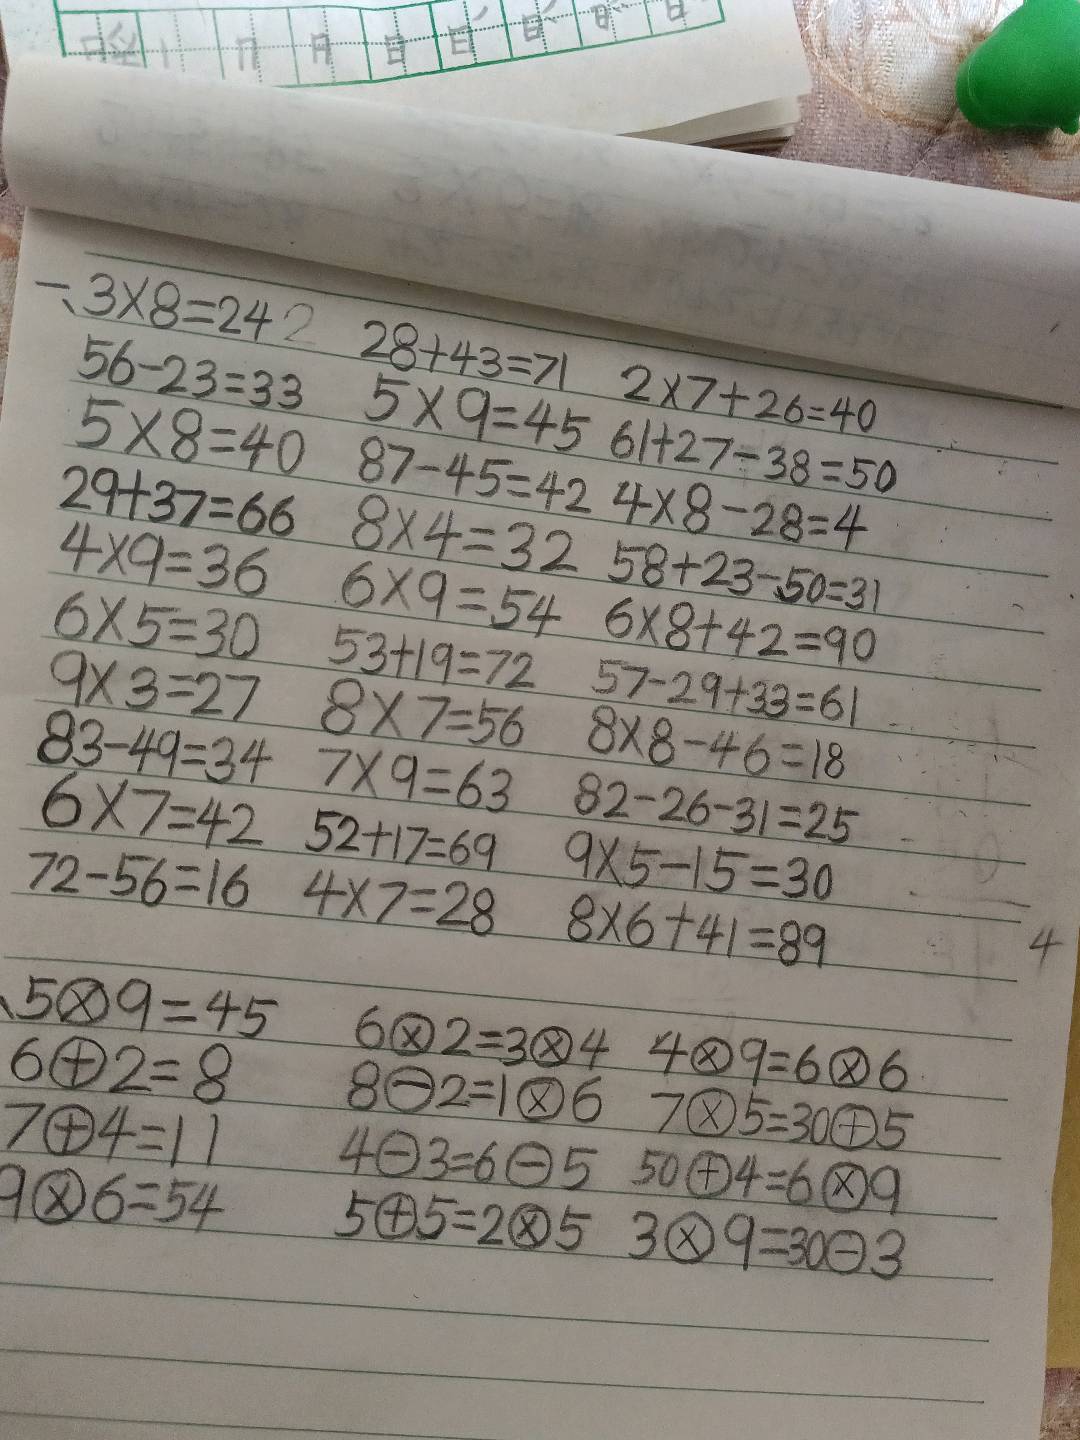 一、3×8=24 2 28+43=71 2×7+26=40
56-23=33 5×9=45 61+27-38=50
5×8=40 87-45=42 4×8-28=4
29+37=66 8×4=32 58+23-50=31
4×9=36 6×9=54 6×8+42=90
6×5=30 53+19=72 57-29+33=61
9×3=27 8×7=56 8×8-46=18
83-49=34 7×9=63 82-26-31=25
6×7=42 52+17=69 9×5-15=30
72-56=16 4×7=28 8×6+41=89
4
、5⊗9=45 6⊗2=3⊗4 4⊗9=6⊗6
6⊕2=8 8⊖2=1⊗6 7⊗5=30⊕5
7⊕4=11 4⊖3=6⊖5 50⊕4=6⊗9
9⊗6=54 5⊕5=2⊗5 3⊗9=30⊖3